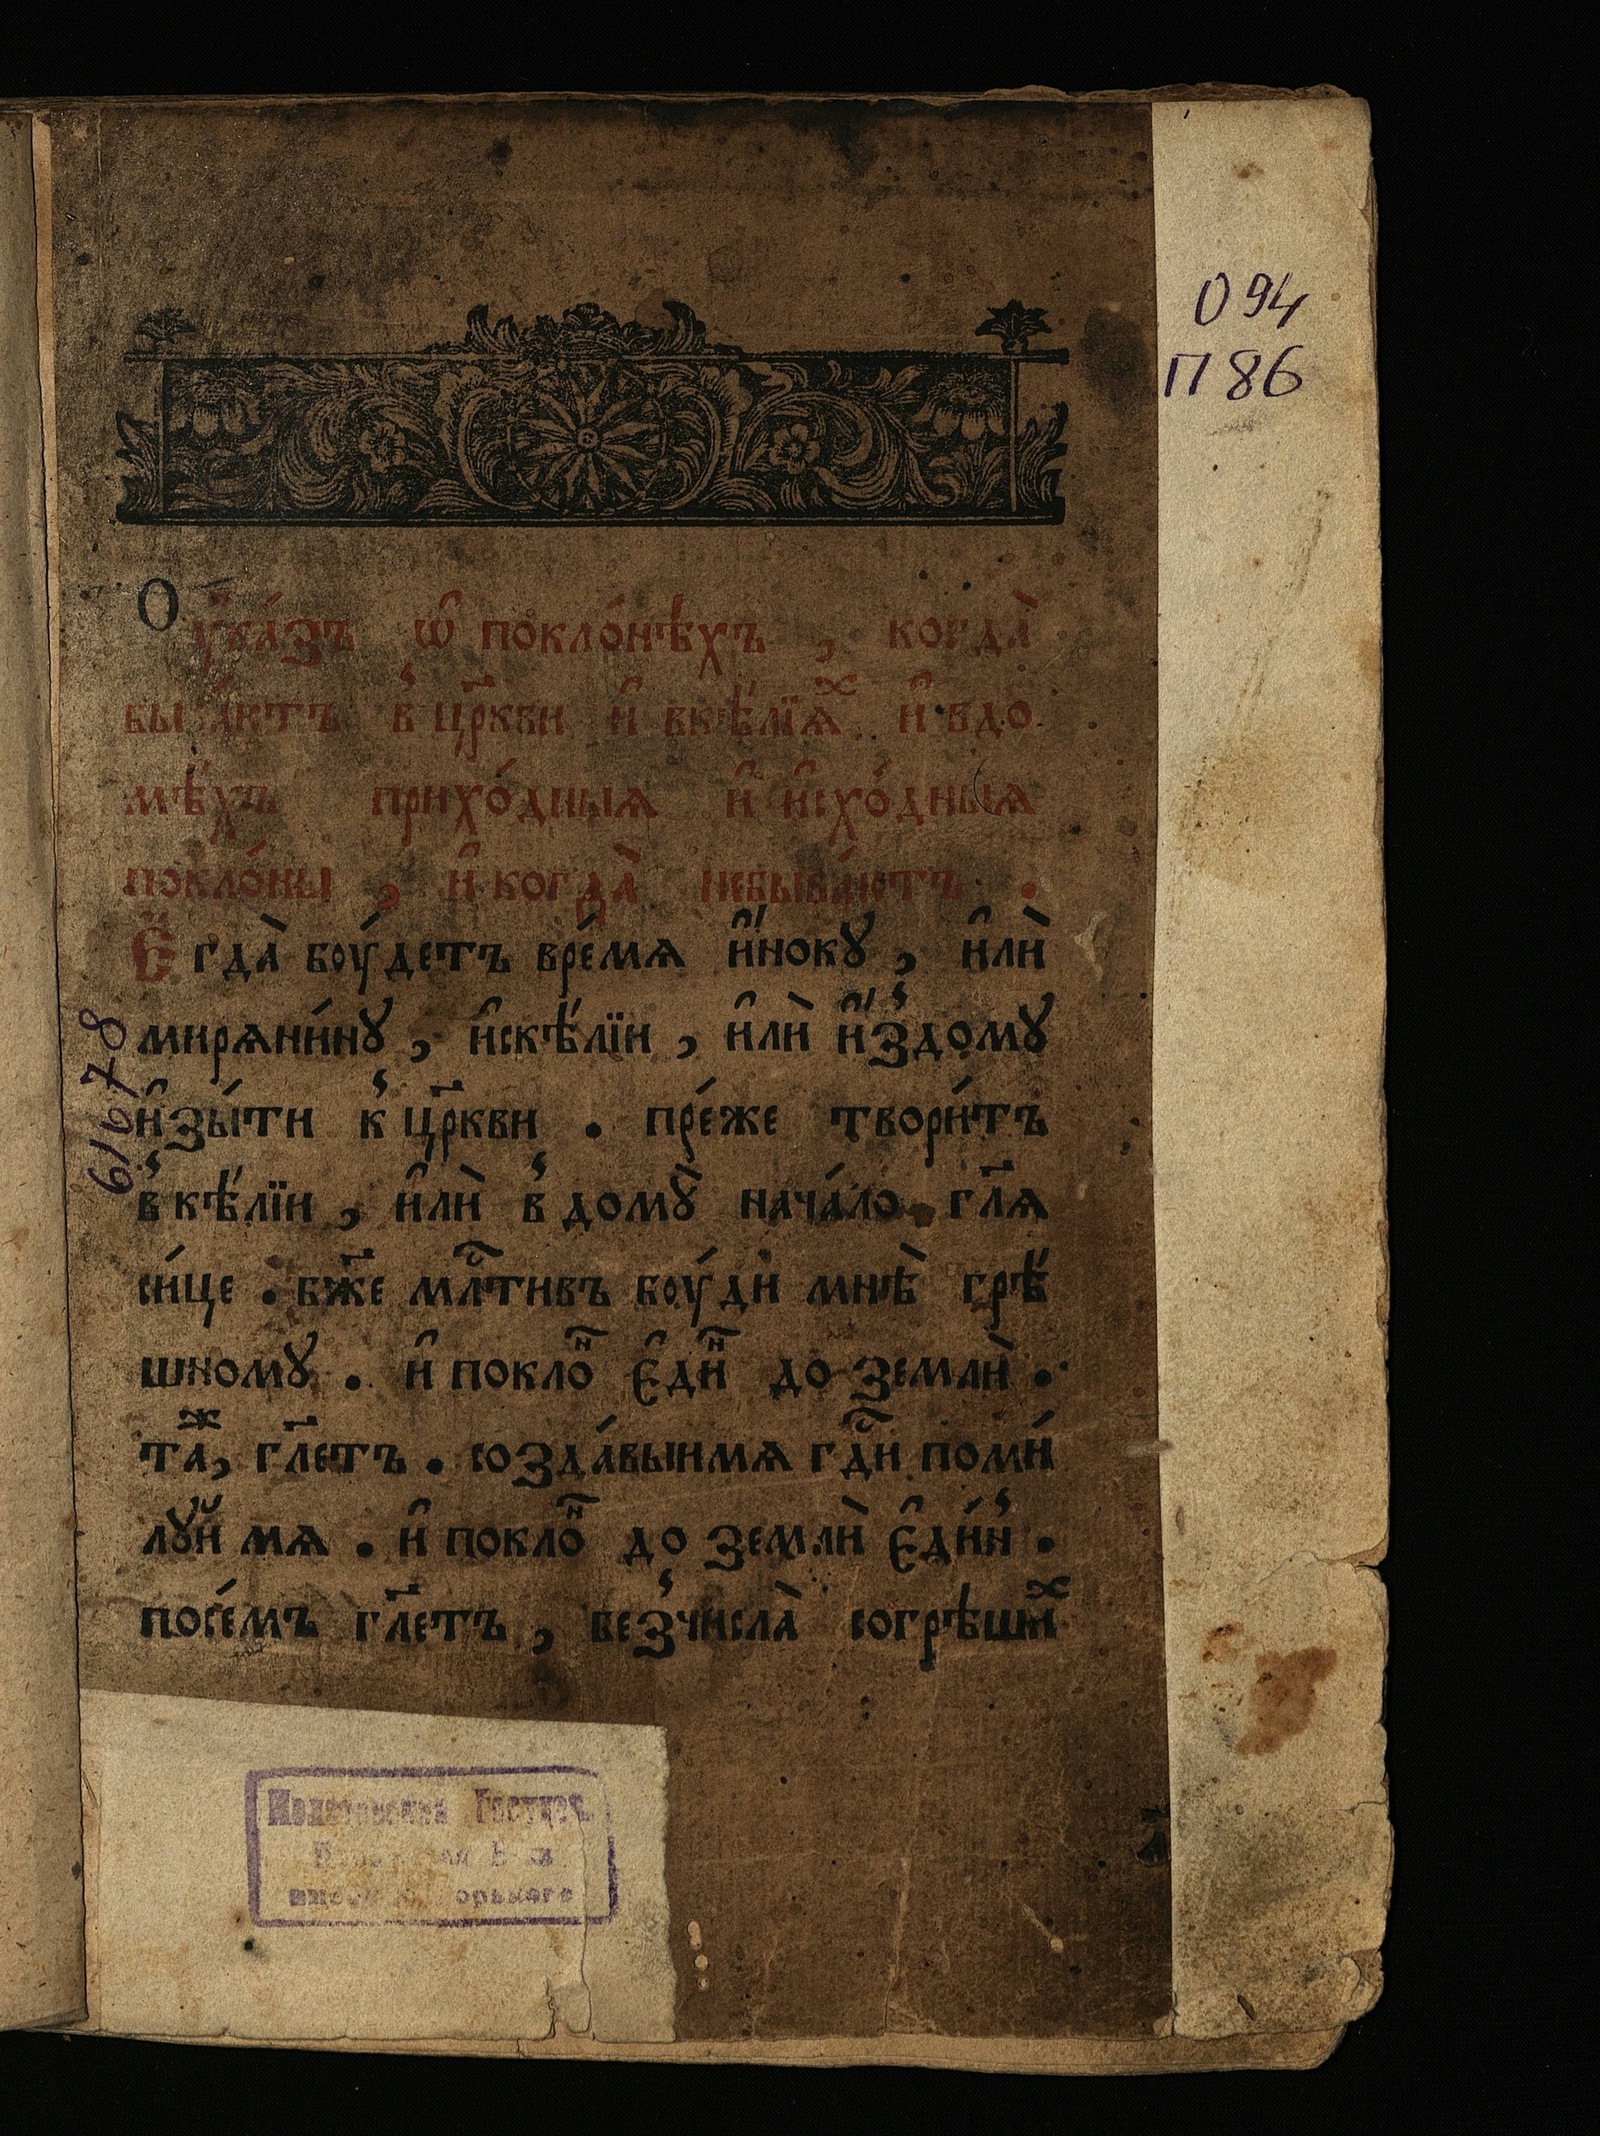 094
П 86
Оу҆ка́зъ ѡ҆ покло́нѣхъ, когда̀
быва́ютъ в҆ цр҃кви и҆ вкѣ́лїѧⷯ и҆ вдо
мѣ́хъ прихо́дныѧ и҆ и҆схо́дныѧ
покло́ны, и҆ когда̀ небыва́ютъ.
Е҆гда̀ боу́детъ вре́мѧ и҆́нокꙋ, и҆лѝ
мирѧни́нꙋ, и҆скѣ́лїи, и҆лѝ и҆́з̾домꙋ
и҆зы́ти к҆ цр҃кви. пре́же твори́тъ
в҆ кѣ́лїи, и҆лѝ в҆ домꙋ̀ нача́ло гл҃ѧ
си́це. бж҃е млⷭ҇тивъ боу́ди мнѣ̀ грѣ́
шномꙋ. и҆ поклоⷩ҇ е҆диⷩ҇ до землѝ.
таⷤ, гл҃етъ. созда́выимѧ гдⷭ҇и поми́
лꙋй мѧ. и҆ поклоⷩ҇ до землѝ е҆ди́н̾.
посе́мъ гл҃етъ, без̾числа̀ согрѣшиⷯ
61678
Государ.
Горького